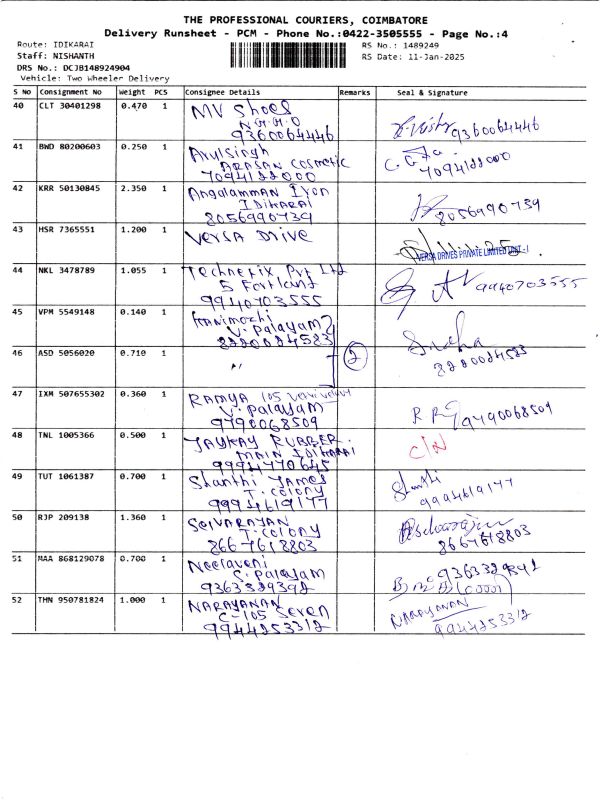 THE PROFESSIONAL COURIERS, COIMBATORE
Delivery Runsheet - PCM - Phone No.:0422-3505555 - Page No.:4
Route: IDIKARAI
Staff: NISHANTH
DRS No.: DCJB148924904
Vehicle: Two Wheeler Delivery
RS No.: 1489249
RS Date: 11-Jan-2025
S No Consignment No Weight PCS Consignee Details Remarks Seal & Signature
40 CLT 30401298 0.470 1 MV Shoes
9360064446 9360064446
41 BWD 80200603 0.250 1 Arulsingh
ARASAN Cosmetic
7094122000 7094122000
42 KRR 50130845 2.350 1 Angalamman
IDikarai
8056990739 8056990739
43 HSR 7365551 1.200 1 Versa Drive VERSA DRIVES PRIVATE LIMITED UNIT - I
44 NKL 3478789 1.055 1 Technetix Pvt Ltd
5 Fortland
9940703555 9940703555
45 VPM 5549148 0.140 1
V. Palayam
46 ASD 5056020 0.710 1 〃 2
47 IXM 507655302 0.360 1 RAMYA 105
V. Palayam
9790068509 9790068509
48 TNL 1005366 0.500 1 JAYKAY RUBBER
MAIN IDIKARAI
9994770645 C/N
49 TUT 1061387 0.700 1 Shanthi JAMES
T. Colony
9994619177 Shanthi 9994619177
50 RJP 209138 1.360 1 SelVARAYAN
T. Colony
8667618803 8667618803
51 MAA 868129078 0.700 1 Neelaveni
S. Palayam
52 THN 950781824 1.000 1 NARAYANAN
C-105 Seven
9944253312 NARAYANAN 9944253312